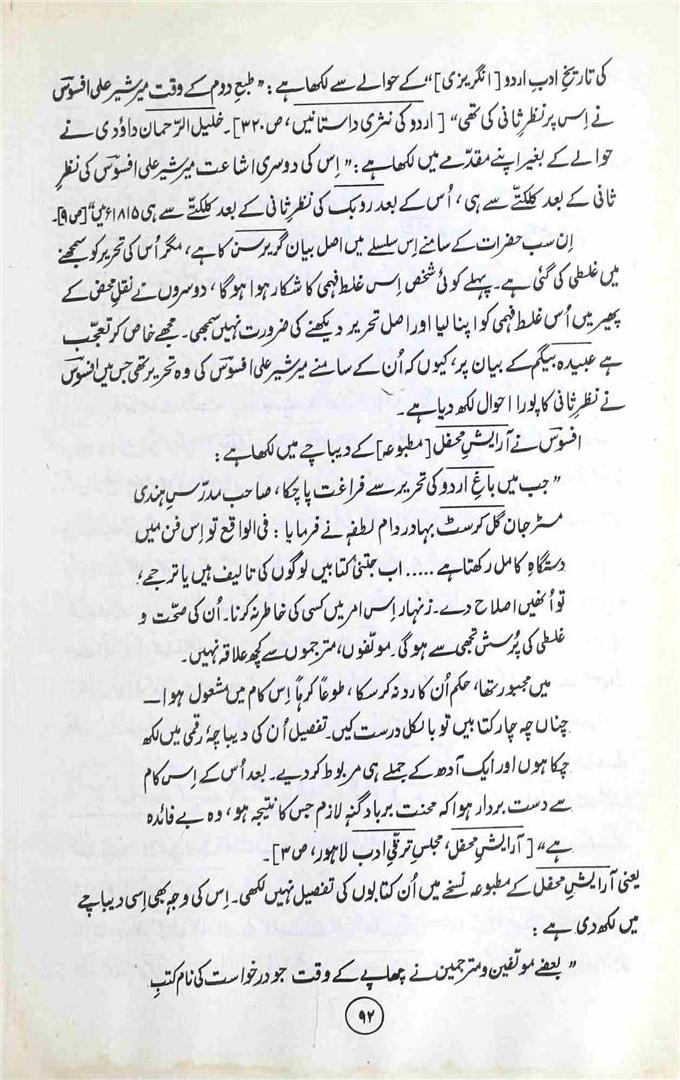 کی تاریخِ ادبِ اردو [انگریزی] “ کے حوالے سے لکھا ہے : ” طبعِ دوم کے وقت میر شیر علی افسوسؔ
نے اِس پر نظرِ ثانی کی تھی “ [اردو کی نثری داستانیں، ص ۳۲۰]۔ خلیل الرّحمان داؤدی نے
حوالے کے بغیر اپنے مقدّمے میں لکھا ہے : ” اِس کی دوسری اشاعت میر شیر علی افسوسؔ کی نظرِ
ثانی کے بعد کلکتّے سے ہی ، اُس کے بعد ردبک کی نظرِ ثانی کے بعد کلکتّے سے ہی ۱۸۱۵ء میں “ [ص ۹]۔
اِن سب حضرات کے سامنے اِس سلسلے میں اصل بیان گریرسن کا ہے، مگر اُس کی تحریر کو سمجھنے
میں غلطی کی گئی ہے۔ پہلے کوئی شخص اِس غلط فہمی کا شکار ہوا ہوگا ، دوسروں نے نقلِ محض کے
پھیر میں اُس غلط فہمی کو اپنا لیا اور اصل تحریر دیکھنے کی ضرورت نہیں سمجھی۔ مجھے خاص کر تعجّب
ہے عبیدہ بیگم کے بیان پر، کیوں کہ اُن کے سامنے میر شیر علی افسوسؔ کی وہ تحریر تھی جس میں افسوسؔ
نے نظرِ ثانی کا پورا احوال لکھ دیا ہے۔
افسوسؔ نے آرایشِ محفل [مطبوعہ] کے دیباچے میں لکھا ہے :
” جب میں باغِ اردو کی تحریر سے فراغت پا چکا ، صاحب مدرّسِ ہندی
مسٹر جان گل کرسٹ بہادر دام لطفہٗ نے فرمایا : فی الواقع تو اِس فن میں
دستگاہِ کامل رکھتا ہے ..... اب جتنی کتابیں لوگوں کی تالیف ہیں یا ترجمے،
تو اُنھیں اصلاح دے۔ زنہار اِس امر میں کسی کی خاطر نہ کرنا۔ اُن کی صحّت و
غلطی کی پُرسش تجھی سے ہوگی۔ مولّفوں، مترجموں سے کچھ علاقہ نہیں۔
میں مجبور تھا، حکم اُن کا رد نہ کر سکا ، طوعاً کرہاً اِس کام میں مشغول ہوا —
چناں چہ چار کتابیں تو بالکل درست کیں۔ تفصیل اُن کی دیباچۂ رقمی میں لکھ
چکا ہوں اور ایک آدھ کے جملے ہی مربوط کر دیے۔ بعد اُس کے اِس کام
سے دست بردار ہوا کہ محنت برباد گنہ لازم جس کا نتیجہ ہو ، وہ بے فائدہ
ہے “ [آرایشِ محفل، مجلسِ ترقّیِ ادب لاہور، ص ۳]۔
یعنی آرایشِ محفل کے مطبوعہ نسخے میں اُن کتابوں کی تفصیل نہیں لکھی۔ اِس کی وجہ بھی اِسی دیباچے
میں لکھ دی ہے :
” بعضے مولّفین و مترجمین نے چھاپے کے وقت جو درخواست کی نام کتبِ
۹۲